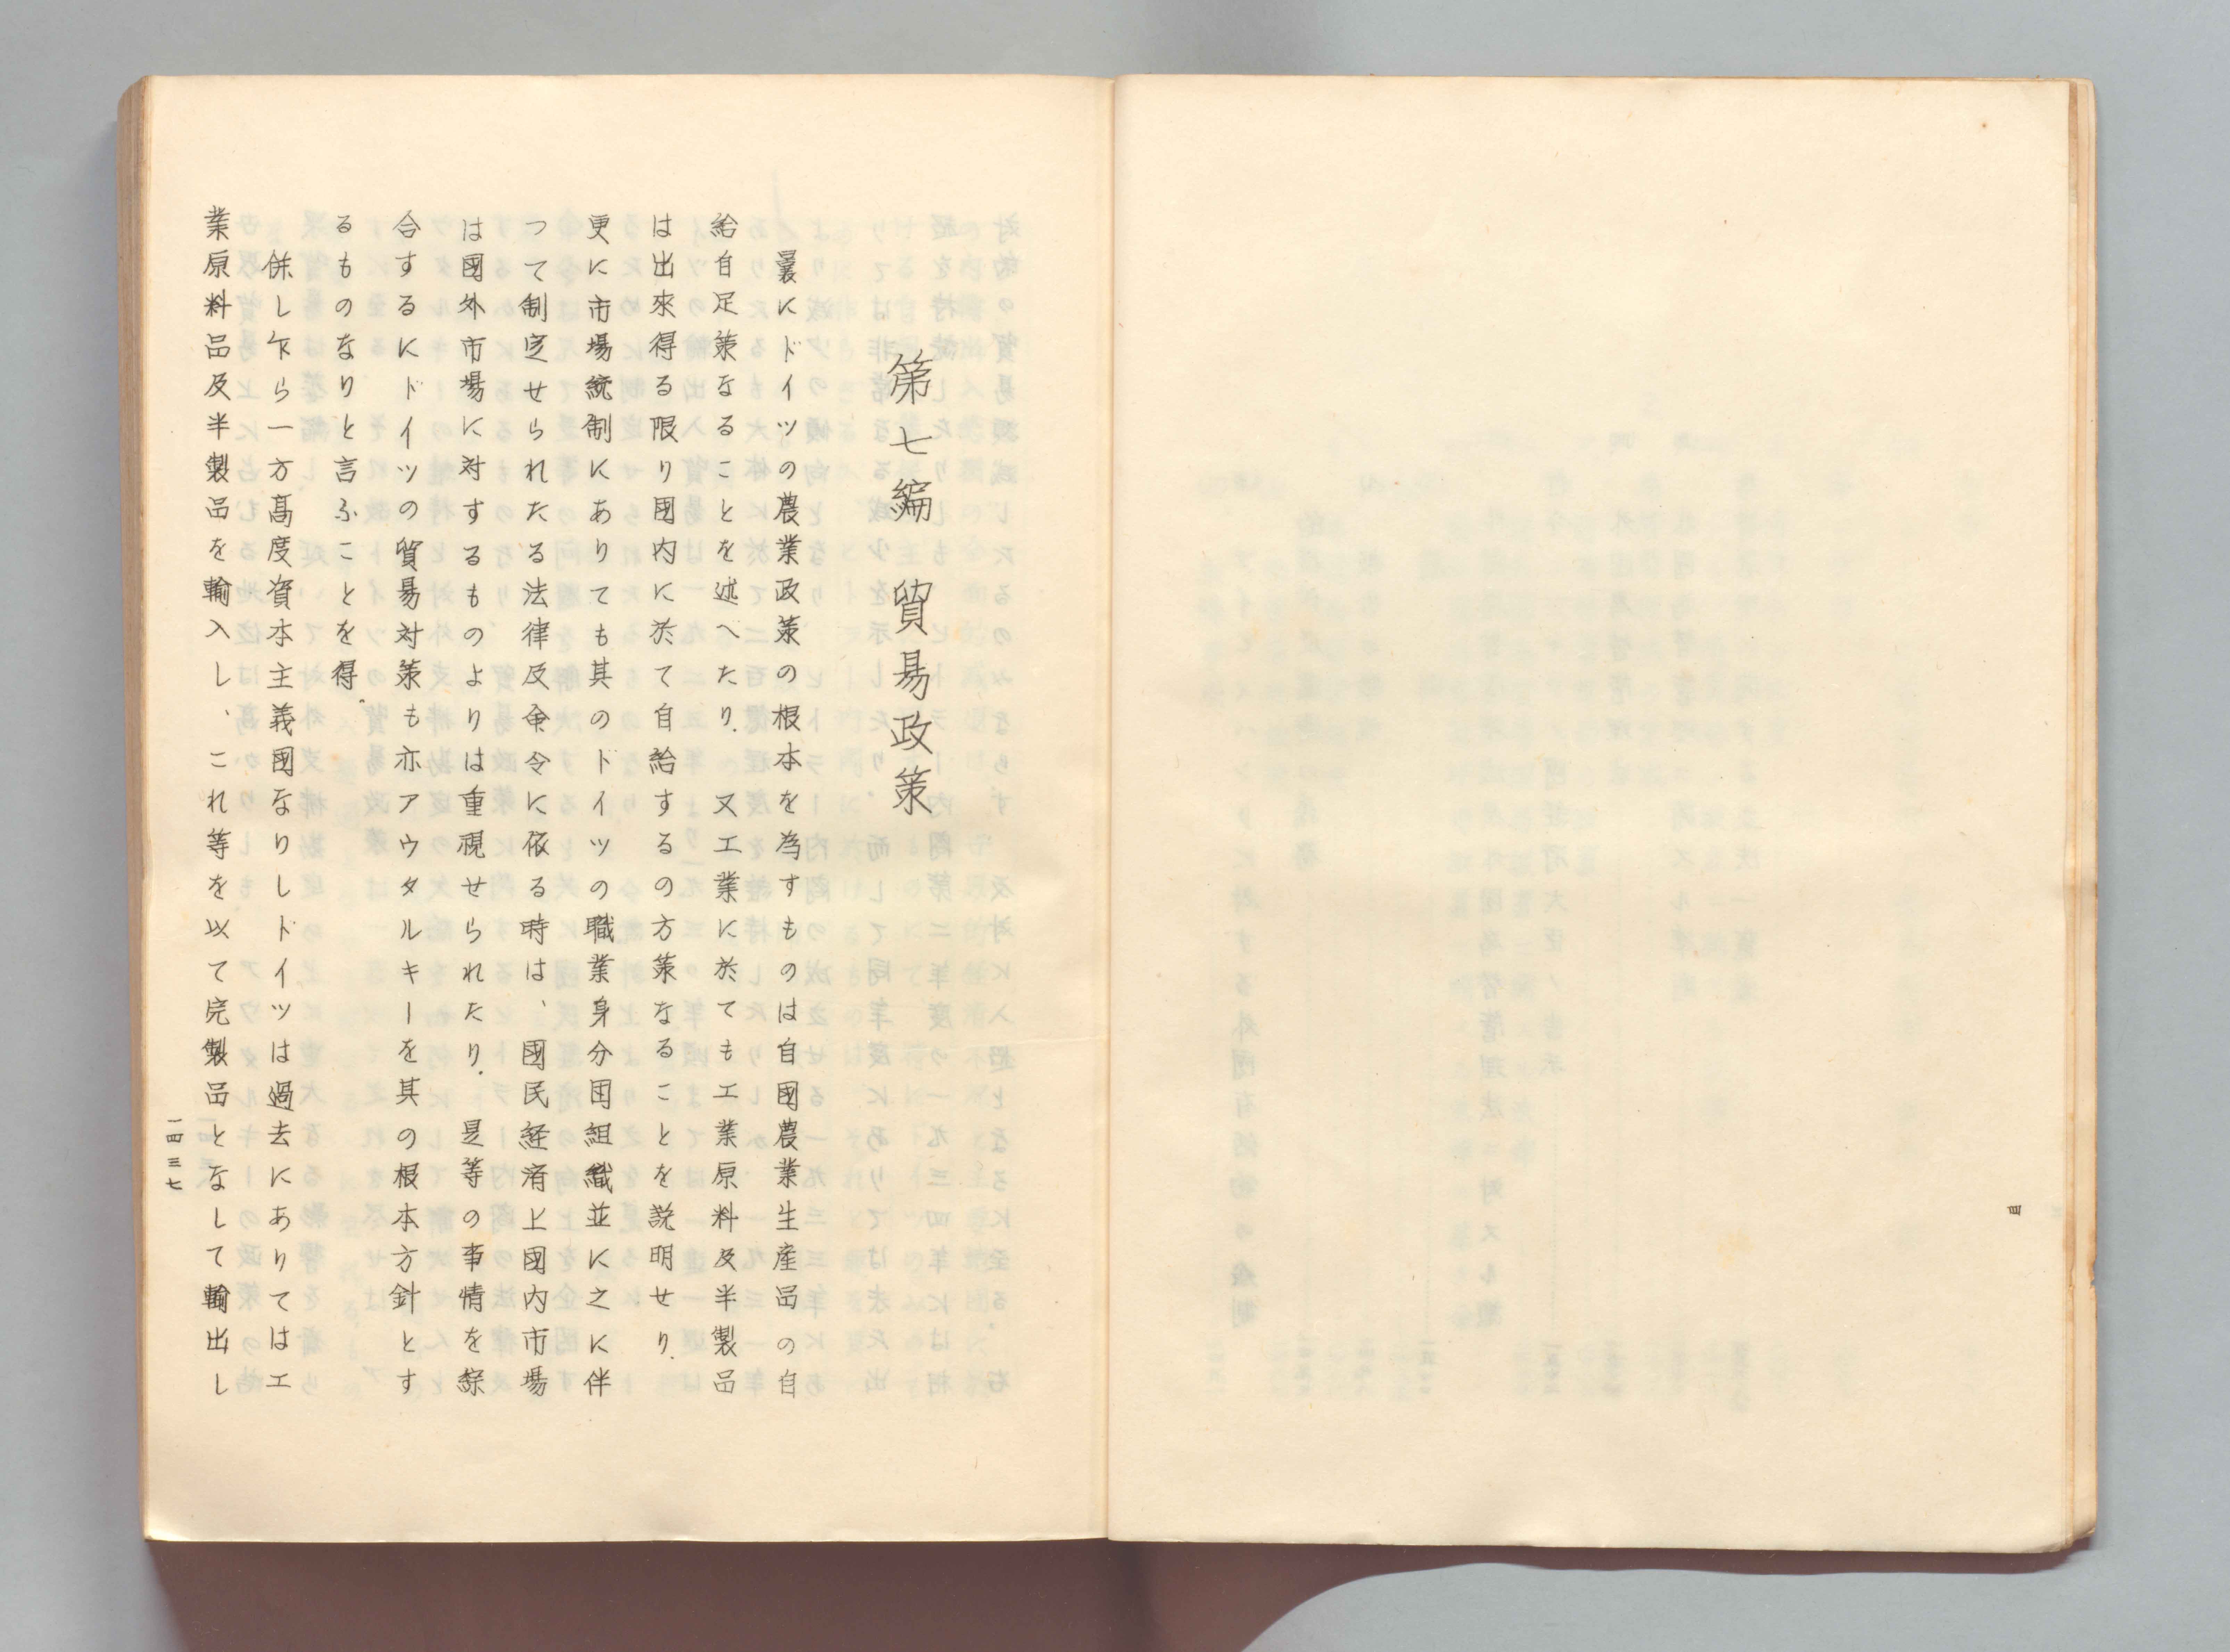 四
第七編　貿易政策
曩にドイツの農業政策の根本を為すものは自國農業生産品の自
給自足策なることを述へたり．又工業に於ても工業原料及半製品
は出來得る限り國内に於て自給するの方策なることを説明せり．
更に市場統制にありても其のドイツの職業身分団組織並に之に伴
つて制定せられたる法律及命令に依る時は、國民経済上國内市場
は國外市場に対するものよりは重視せられたり．是等の事情を綜
合するにドイツの貿易対策も亦アウタルキーを其の根本方針とす
るものなりと言ふことを得．
併し乍ら一方高度資本主義國なりしドイツは過去にありては工
業原料品及半製品を輸入し、これ等を以て完製品となして輸出し
一四三七